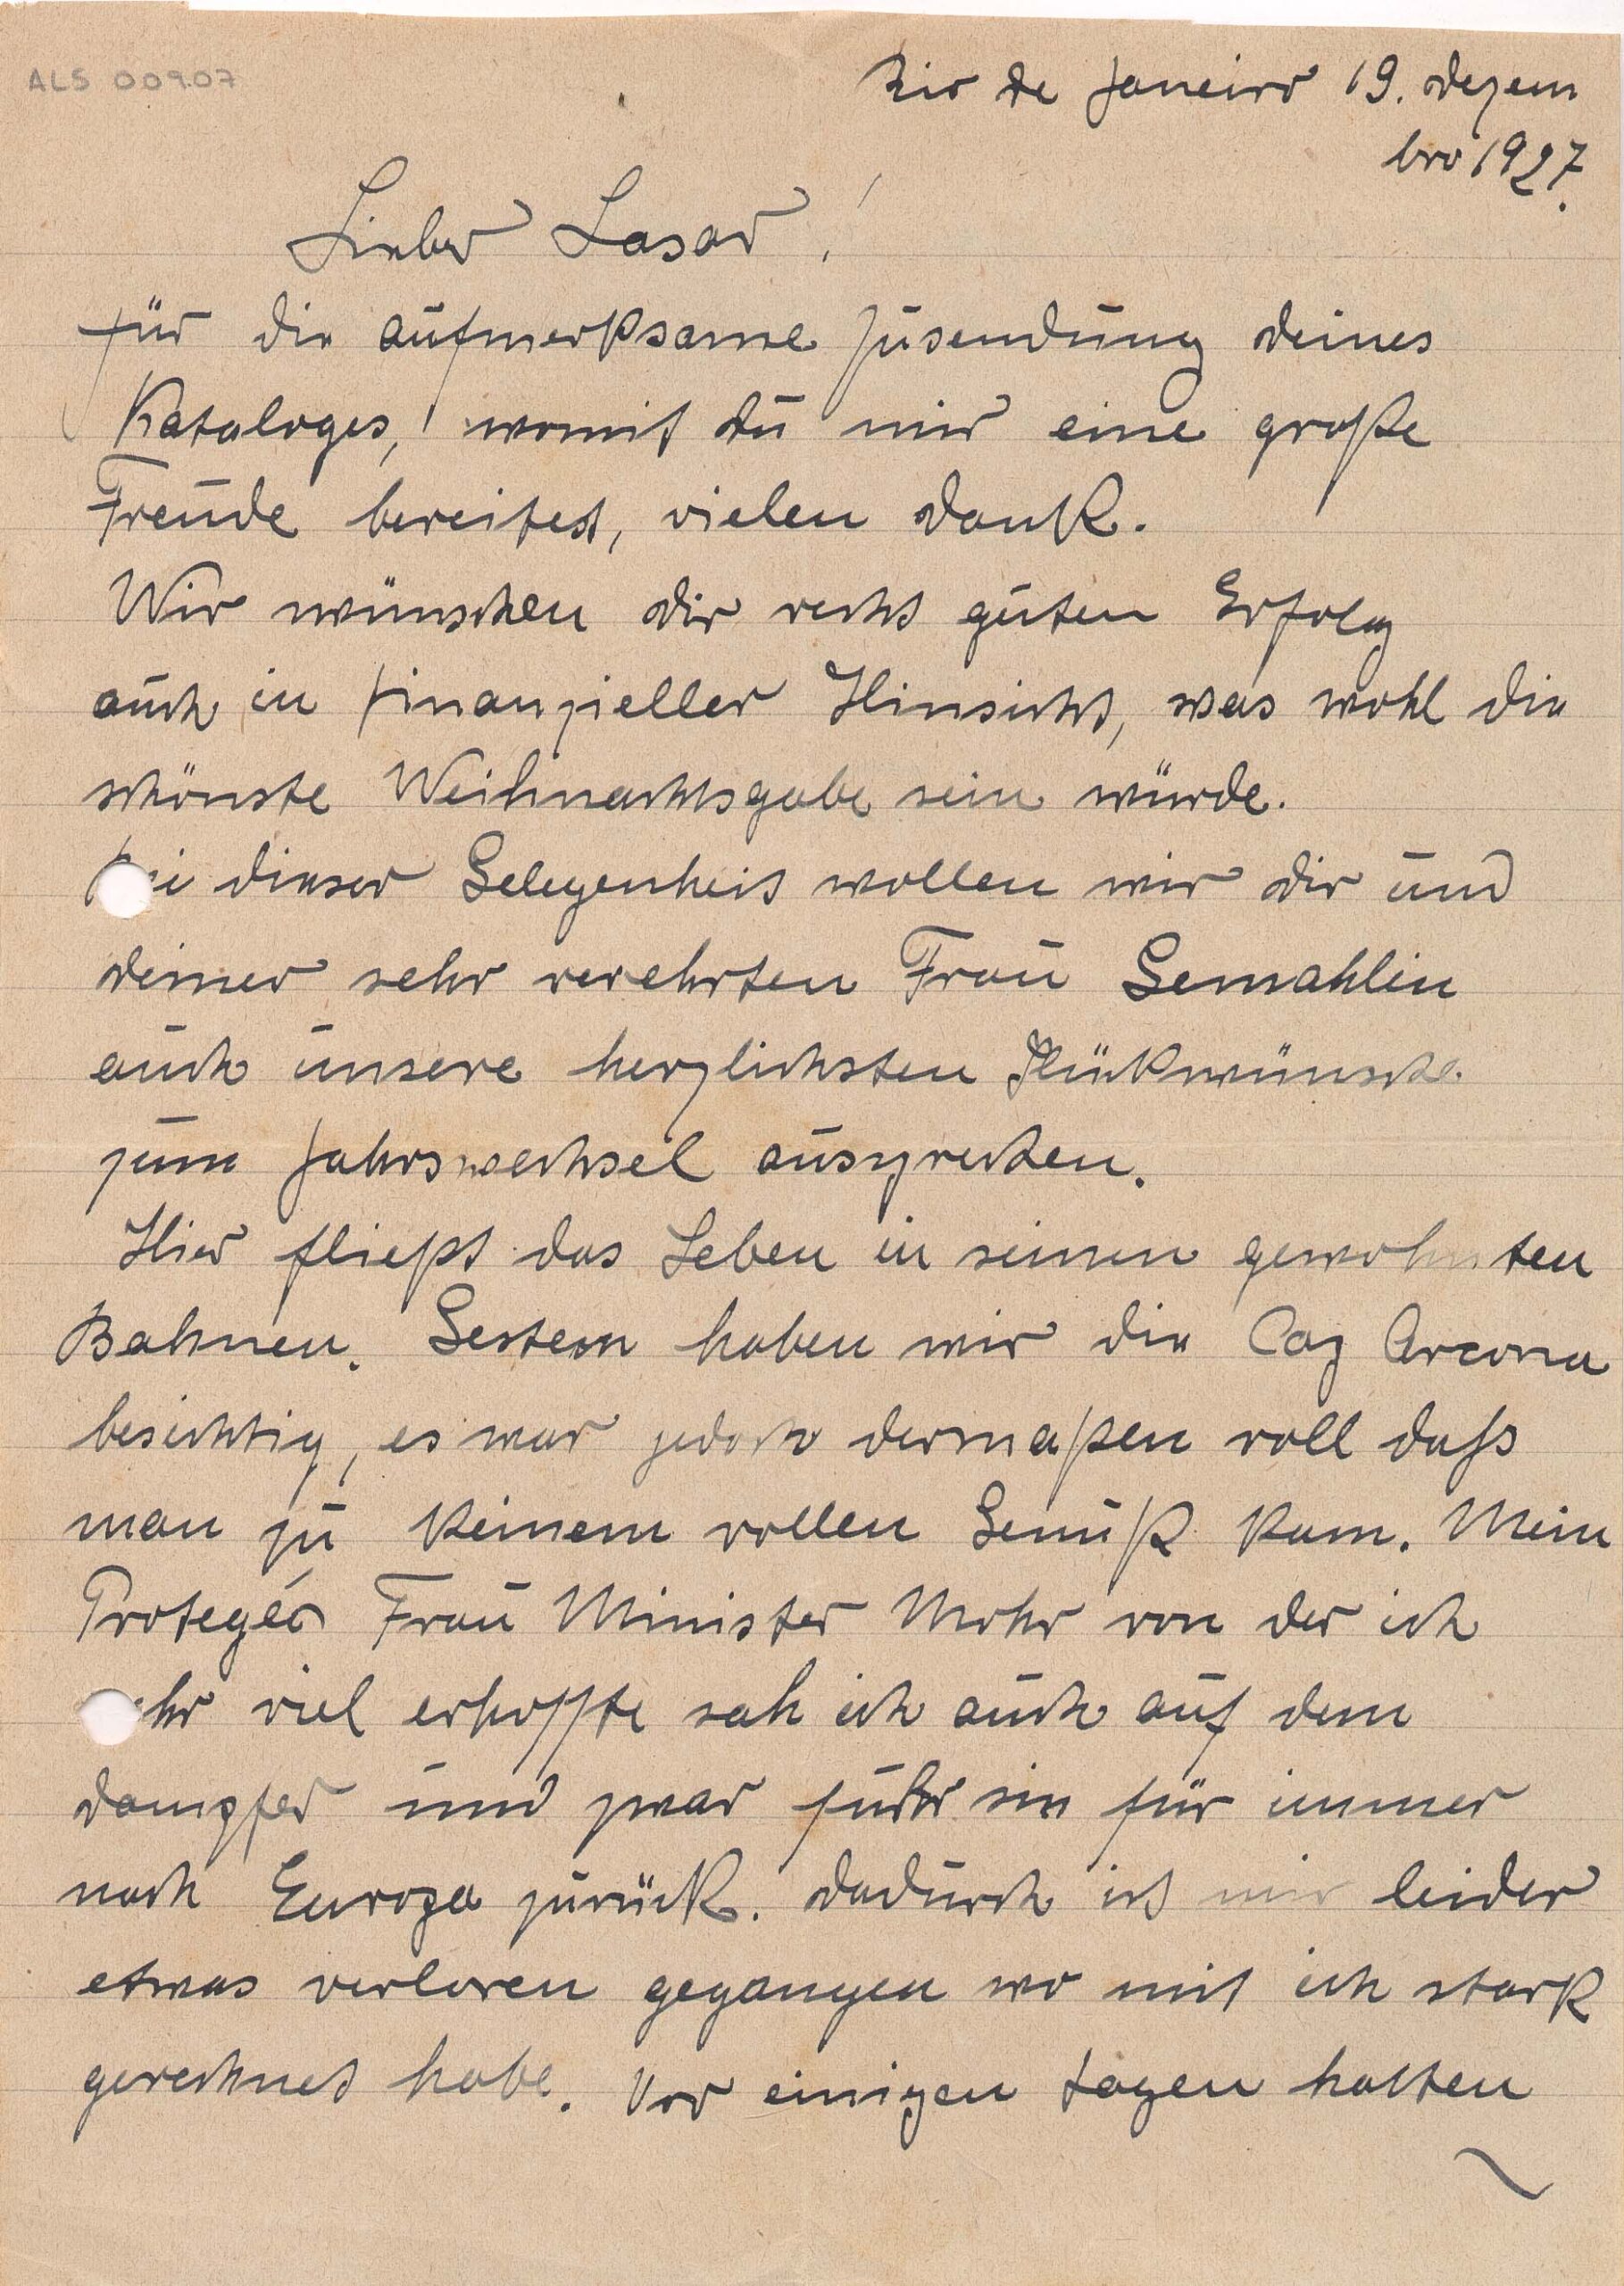 ALS 00907
Rio de Janeiro 19. Dezem
bro 1927.
Lieber Lasar!
für die aufmerksame Zusendung deines
Kataloges, womit du mir eine große
Freude bereitest, vielen Dank.
Wir wünschen dir recht guten Erfolg
auch in finanzieller Hinsicht, was wohl die
schönste Weihnachtsgabe sein würde.
Bei dieser Gelegenheit wollen wir dir und
deiner sehr verehrten Frau Gemahlin
auch unsere herzlichsten Glückwünsche
zum Jahrswechsel aussprechen.
Hier fließt das Leben in seinen gewohnten
Bahnen. Gestern haben wir die Cap Arcona
besichtig, es war jedoch dermaßen voll daß
man zu keinem vollen Genuß kam. Mein
Protegée Frau Minister Mohr von der ich
sehr viel erhoffte sah ich auch auf dem
Dampfer und zwar fuhr sie für immer
nach Europa zurück. Dadurch ist mir leider
etwas verloren gegangen wo mit ich stark
gerechnet habe. Vor einigen Tagen hatten